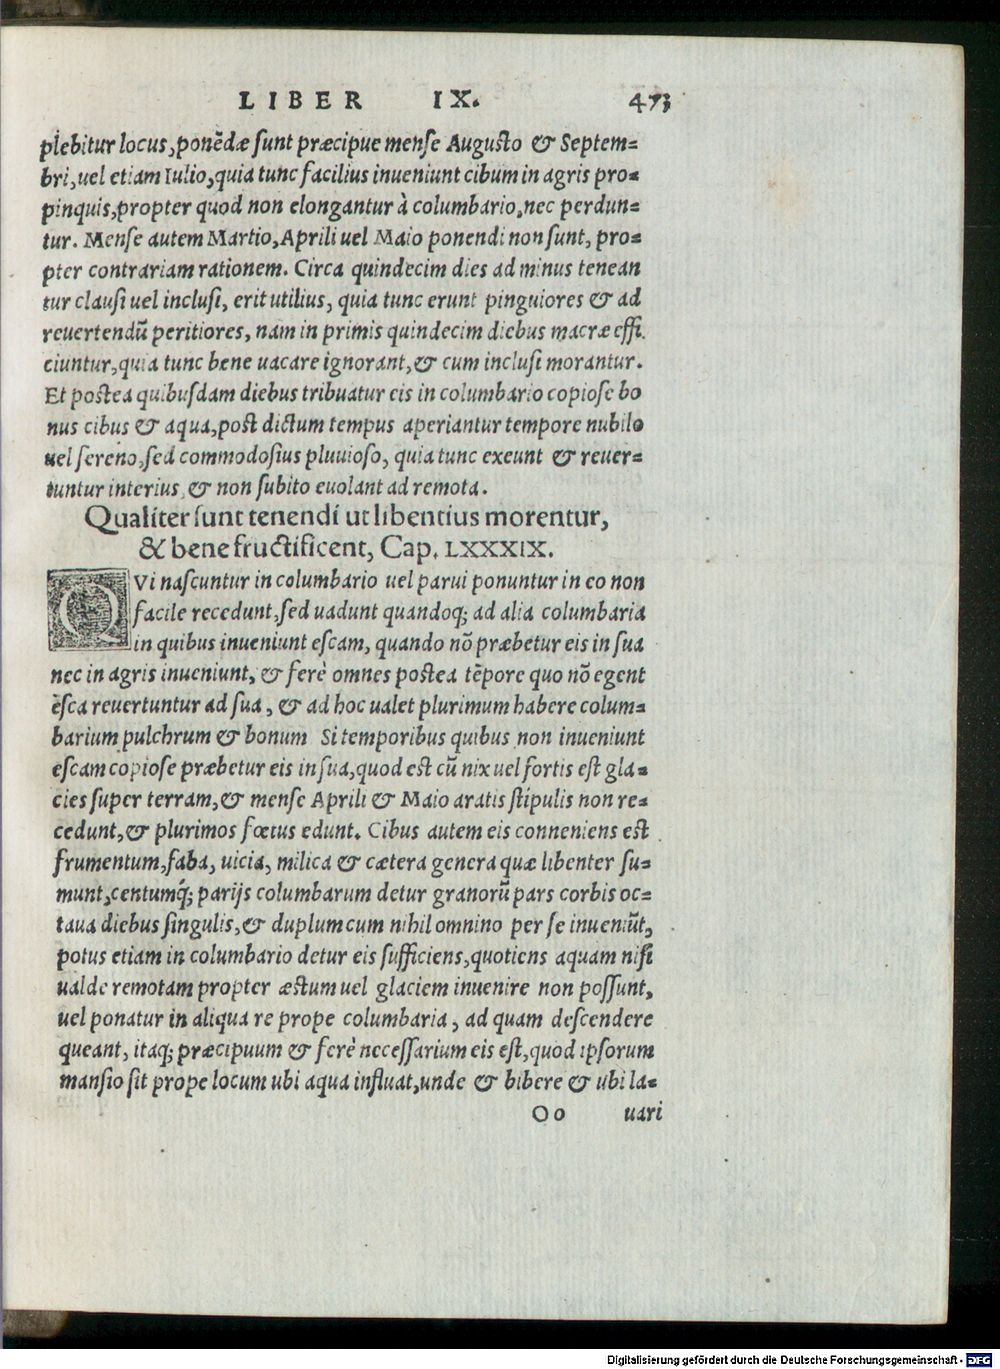 LIBER IX. 473
plebitur locus, ponēdæ sunt præcipue mense Augusto & Septem=
bri, uel etiam Iulio, quia tunc facilius inueniunt cibum in agris pro=
pinquis, propter quod non elongantur à columbario, nec perdun=
tur. Mense autem Martio, Aprili uel Maio ponendi non sunt, pro=
pter contrariam rationem. Circa quindecim dies ad minus tenean
tur clausi uel inclusi, erit utilius, quia tunc erunt pinguiores & ad
reuertendū peritiores, nam in primis quindecim diebus macræ effi
ciuntur, quia tunc bene uacare ignorant, & cum inclusi morantur.
Et postea quibusdam diebus tribuatur eis in columbario copiose bo
nus cibus & aqua, post dictum tempus aperiantur tempore nubilo
uel sereno, sed commodosius pluuioso, quia tunc exeunt & reuer=
tuntur interius, & non subito euolant ad remota.
Qualiter sunt tenendi ut libentius morentur,
& bene fructificent, Cap. LXXXIX.
QVi nascuntur in columbario uel parui ponuntur in eo non
facile recedunt, sed uadunt quandoq; ad alia columbaria
in quibus inueniunt escam, quando nō præbetur eis in sua
nec in agris inueniunt, & ferè omnes postea tēpore quo nō egent
ēsca reuertuntur ad sua, & ad hoc ualet plurimum habere colum=
barium pulchrum & bonum Si temporibus quibus non inueniunt
escam copiose præbetur eis in sua, quod est cū nix uel fortis est gla=
cies super terram, & mense Aprili & Maio aratis stipulis non re=
cedunt, & plurimos fœtus edunt. Cibus autem eis conneniens est
frumentum, faba, uicia, milica & cætera genera quæ libenter su=
munt, centumq́; parijs columbarum detur granorū pars corbis oc=
taua diebus singulis, & duplum cum nihil omnino per se inueniūt,
potus etiam in columbario detur eis sufficiens, quotiens aquam nisi
ualde remotam propter æstum uel glaciem inuenire non possunt,
uel ponatur in aliqua re prope columbaria, ad quam descendere
queant, itaq; præcipuum & ferè necessarium eis est, quod ipsorum
mansio sit prope locum ubi aqua influat, unde & bibere & ubi la=
Oo uari
Digitalisierung gefördert durch die Deutsche Forschungsgemeinschaft - DFG